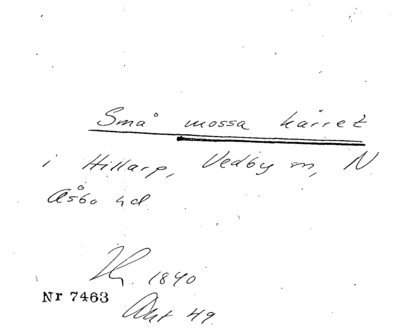 Små mossa kärret
i Hillarp, Vedby sn, N
Åsbo hd
1840
Nr 7463
Akt 49